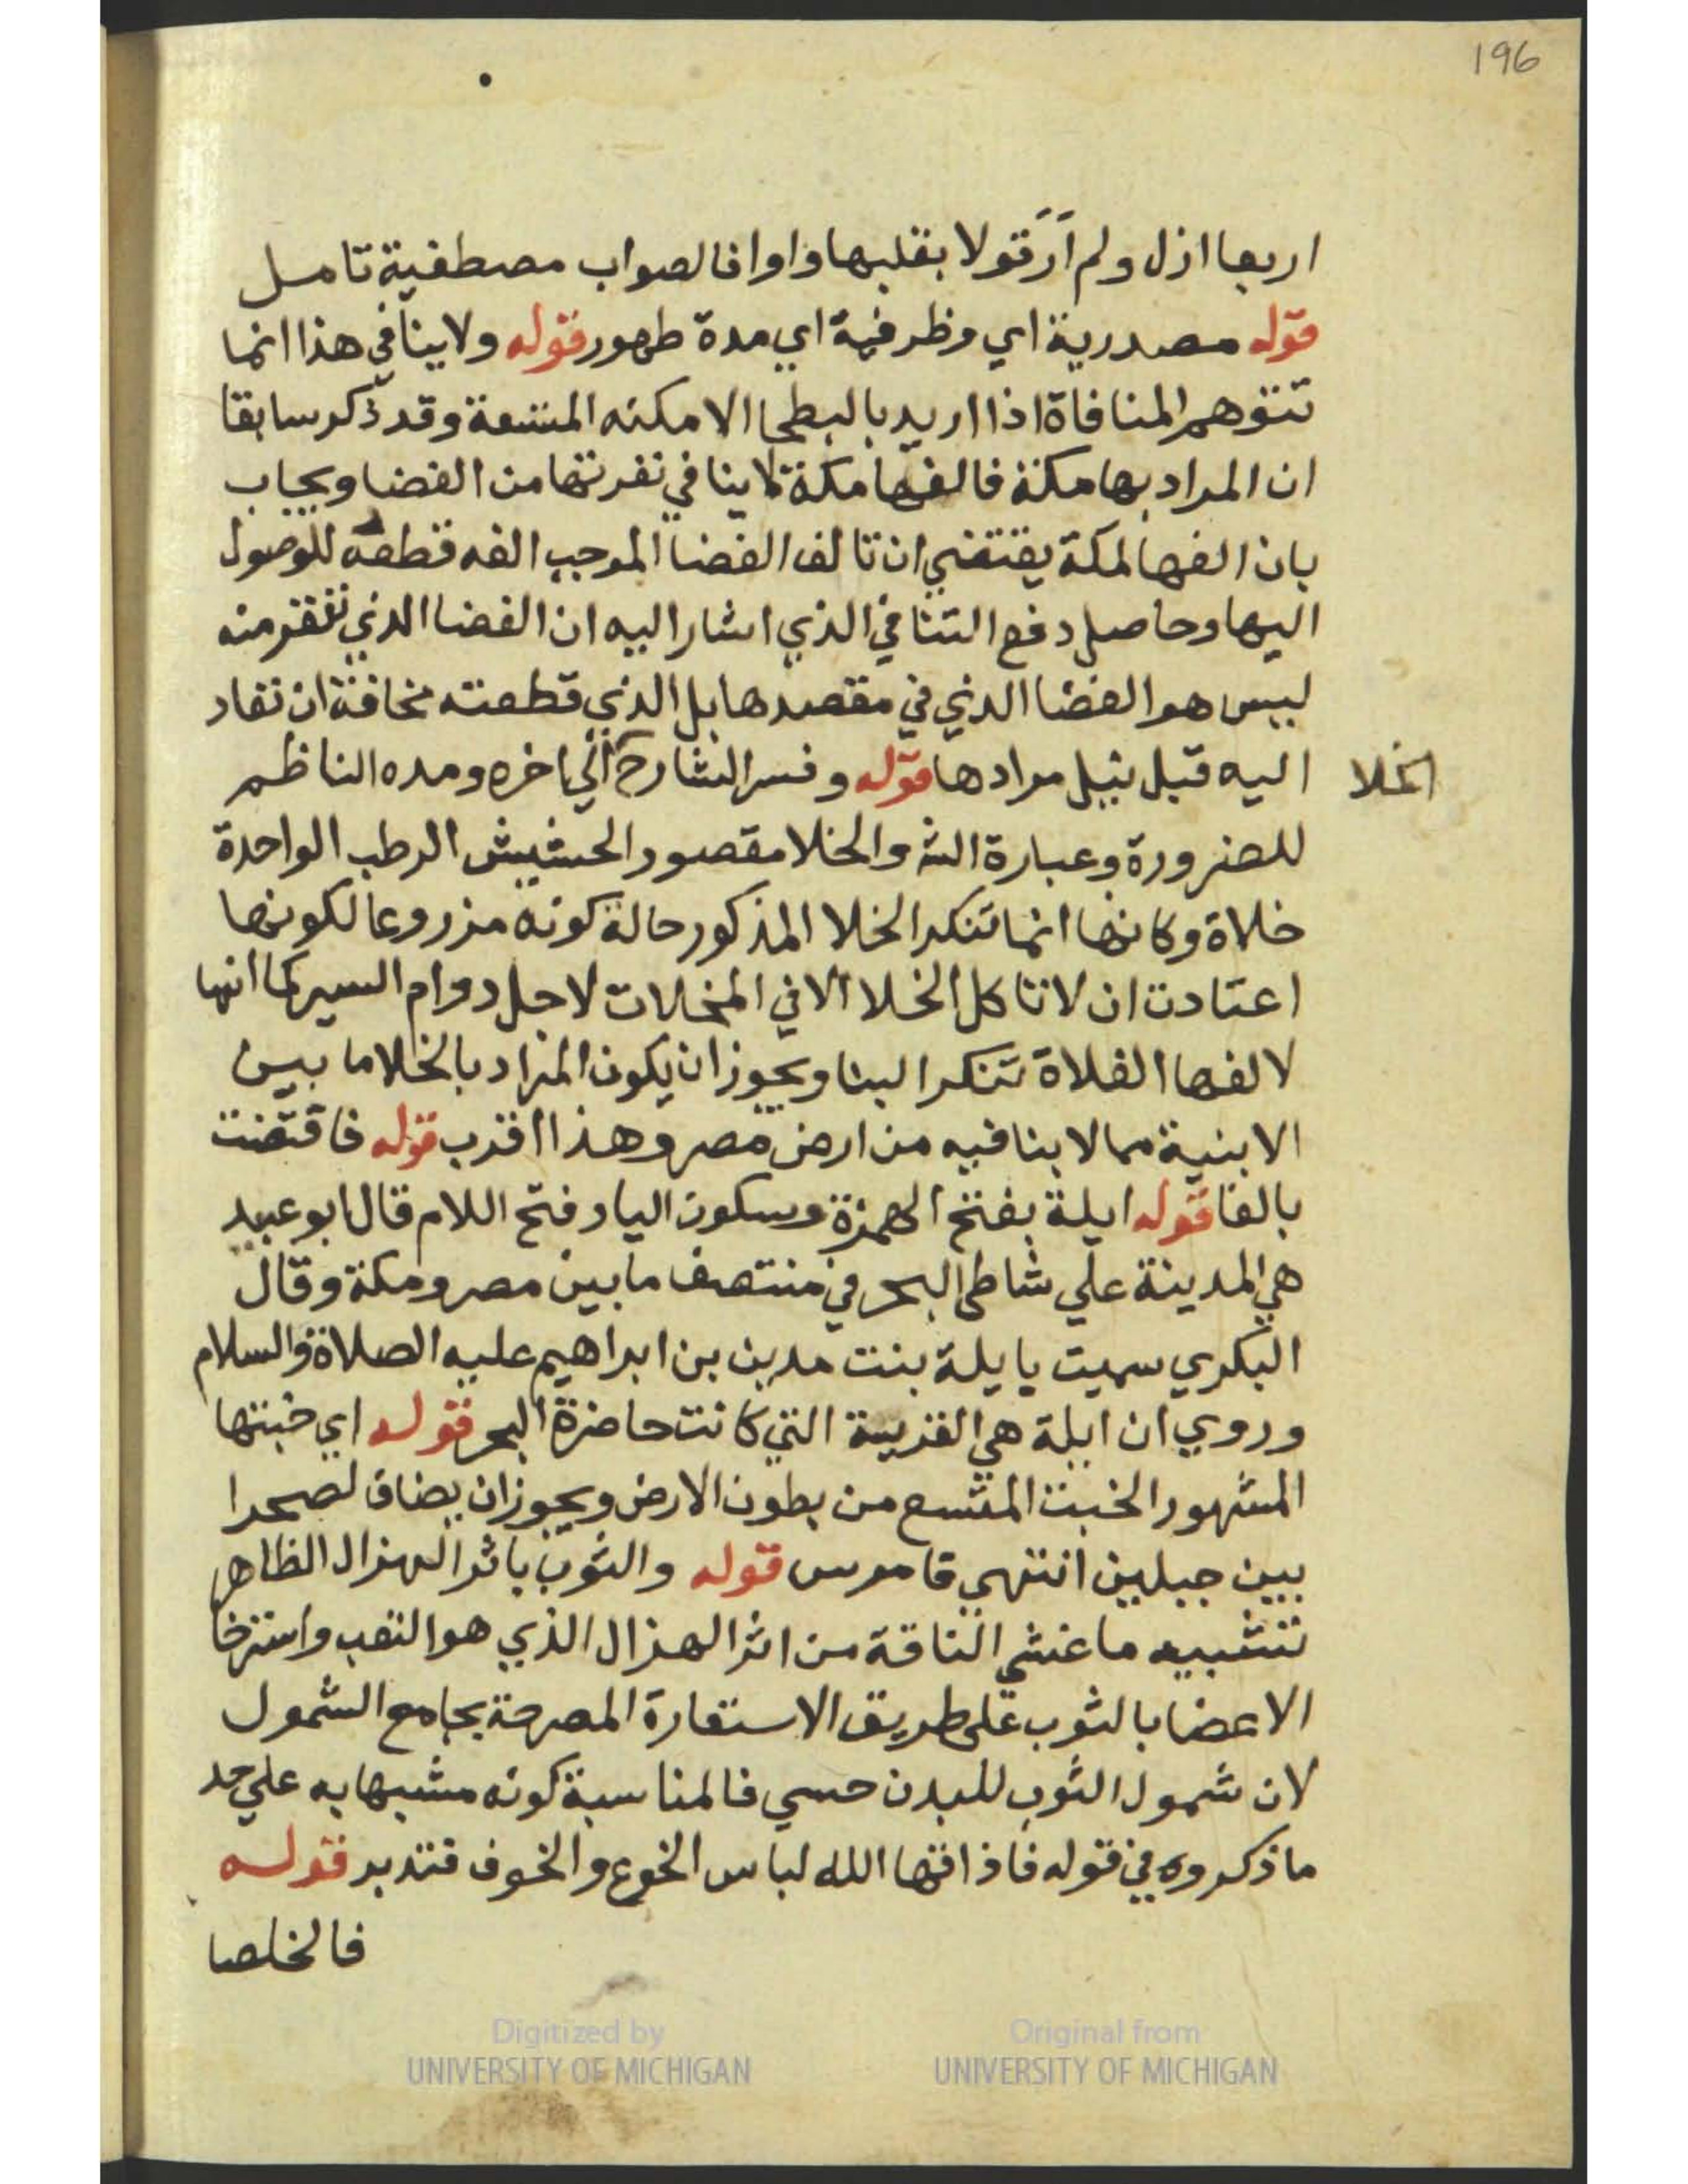 196
اربعا ازل ولم أرَ قولا بقلبها واوا فالصواب مصطفية تامل
قوله مصدرية اي وظرفية اي مدة ظهور قوله ولا ينافي هذا انما
تتوهم المنافاة اذا اريد بالبطحا الامكنه المتسعة وقد ذكر سابقا
ان المراد بها مكة فالفها مكة لا ينافي نفرتها من الفضا ويجاب
بان الفها لمكة يقتضي ان تالف الفضا الموجب الفه قطعه للوصول
اليها وحاصل دفع التنافي الذي اشار اليه ان الفضا الذي تنفر منه
ليس هو الفضا الذي في مقصدها بل الذي قطعته مخافة ان تقاد
اليه قبل نيل مرادها قوله وفسر الشارح الي اخره ومده الناظم
الخلا
للضرورة وعبارة الش والخلا مقصور الحشيش الرطب الواحدة
خلاة وكانها انما تنكر الخلا المذكور حالة كونه مزروعا لكونها
اعتادت ان لا تاكل الخلا الا في المخلات لاجل دوام السير كما انها
لالفها الفلاة تنكر البنا ويجوز ان يكون المراد بالخلا ما بين
الابنية مما لا بنا فيه من ارض مصر وهذا اقرب قوله فاقتضت
بالفا قوله ايلة بفتح الهمزة وسكون اليا وفتح اللام قال ابو عبيد
هي المدينة علي شاطي البحر في منتصف ما بين مصر ومكة وقال
البكري سميت بايلة بنت مدين بن ابراهيم عليه الصلاة والسلام
وروي ان ايلة هي القرية التي كانت حاضرة البحر قوله اي خبتها
المشهور الخبت المتسع من بطون الارض ويجوز ان يضاف لصحرا
بين جبلين انتهي قاموس قوله والثوب باثر الهزال الظاهر
تشبيه ما غشي الناقة من اثر الهزال الذي هو التعب واسترخا
الاعضا بالثوب علي طريق الاستعارة المصرحة بجامع الشمول
لان شمول الثوب للبدن حسي فالمناسبة كونه مشبها به علي حد
ما ذكروه في قوله فاذاقها الله لباس الخوع والخوف فتدبر قوله
فالخلصا
Digitized by
UNIVERSITY OF MICHIGAN
Original from
UNIVERSITY OF MICHIGAN